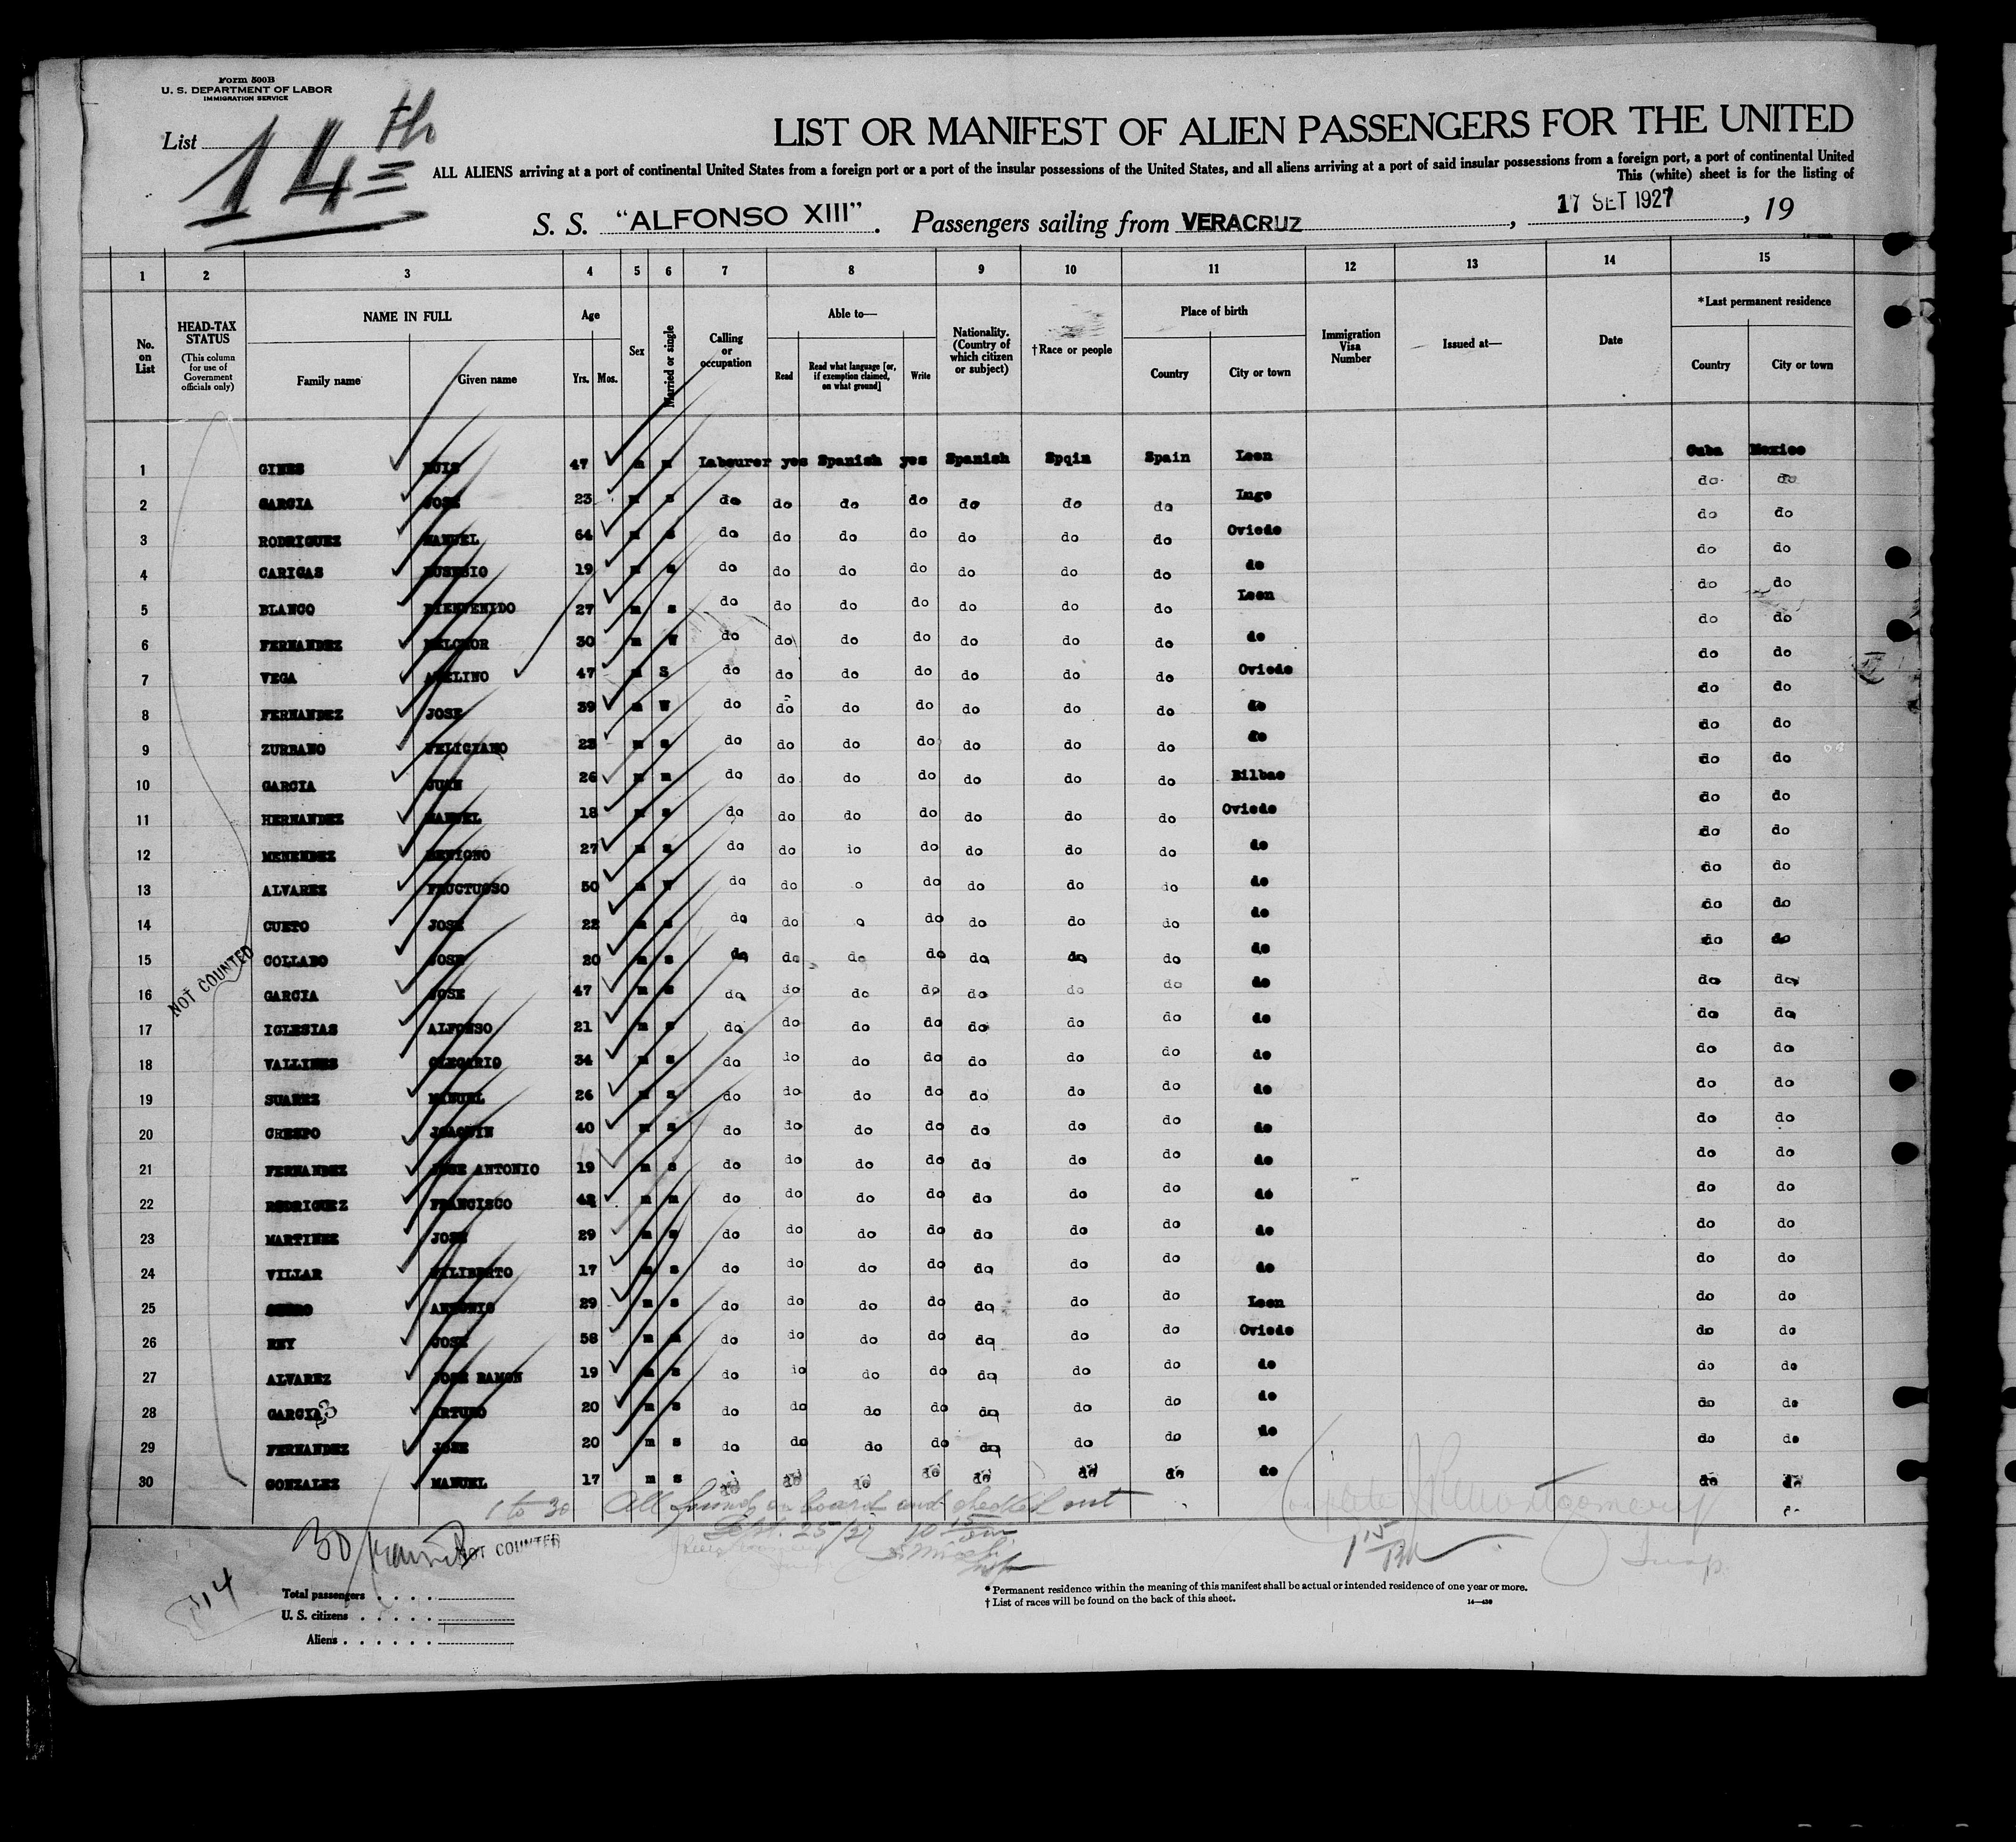 Form 500B
U. S. DEPARTMENT OF LABOR
IMMIGRATION SERVICE
List 14th
LIST OR MANIFEST OF ALIEN PASSENGERS FOR THE UNITED
ALL ALIENS arriving at a port of continental United States from a foreign port or a port of the insular possessions of the United States, and all aliens arriving at a port of said insular possessions from a foreign port, a port of continental United
This (white) sheet is for the listing of
S. S. "ALFONSO XIII". Passengers sailing from VERACRUZ, 17 SET 1927, 19
1 2 3 4 5 6 7 8 9 10 11 12 13 14 15
No. on List
HEAD-TAX STATUS (This column for use of Government officials only)
NAME IN FULL
Family name Given name
Age
Yrs. Mos.
Sex
Married or single
Calling or occupation
Able to—
Read
Read what language [or, if exemption claimed, on what ground]
Write
Nationality. (Country of which citizen or subject)
†Race or people
Place of birth
Country City or town
Immigration Visa Number
Issued at—
Date
*Last permanent residence
Country City or town
1 GINES LUIS 47 m m Labourer yes Spanish yes Spanish Spqin Spain Leon Cuba Mexico
2 GARCIA JOSE 23 m s do do do do do do do Lugo do do
3 RODRIGUEZ MANUEL 64 m s do do do do do do do Oviedo do do
4 CARIGAS EUSEBIO 19 m s do do do do do do do do do do
5 BLANCO BIENVENIDO 27 m s do do do do do do do Leon do do
6 FERNANDEZ MELCHOR 30 m W do do do do do do do do do do
7 VEGA AVELINO 47 m S do do do do do do do Oviedo do do
8 FERNANDEZ JOSE 39 m W do do do do do do do do do do
9 ZURBANO FELICIANO 23 m s do do do do do do do do do do
10 GARCIA JUAN 26 m m do do do do do do do Bilbao do do
11 HERNANDEZ MANUEL 18 m s do do do do do do do Oviedo do do
12 MENENDEZ BENIGNO 27 m s do do io do do do do do do do
13 ALVAREZ FRUCTUOSO 50 m W do do o do do do io do do do
14 CUETO JOSE 22 m s do do o do do do do do do do
15 COLLADO JOSE 20 m s do do do do do do do do do do
16 GARCIA JOSE 47 m s do do do do do do do do do do
17 IGLESIAS ALFONSO 21 m s do do do do do do do do do do
18 VALLINES OLEGARIO 34 m s do io do do do do do do do do
19 SUAREZ MANUEL 26 m s do do do do do do do do do do
20 CRESPO JOAQUIN 40 m s do do do do do do do do do do
21 FERNANDEZ JOSE ANTONIO 19 m s do do do do do do do do do do
22 RODRIGUEZ FRANCISCO 42 m m do do do do do do do do do do
23 MARTINEZ JOSE 29 m s do do do do do do do do do do
24 VILLAR FILIBERTO 17 m s do do do do do do do do do do
25 ANTONIO 29 m s do do do do do do do Leon do do
26 REY JOSE 58 m m do do do do do do do Oviedo do do
27 ALVAREZ JOSE RAMON 19 m s do io do do do do do do do do
28 GARCIA ARTURO 20 m s do do do do do do do do do do
29 FERNANDEZ JOSE 20 m s do do do do do do do do do do
30 GONZALEZ MANUEL 17 m s do do do do do do do do do do
NOT COUNTED
1 to 30 All found on board and checked out
Sept. 25/27 10 15
30
NOT COUNTED
Total passengers
U. S. citizens
Aliens
* Permanent residence within the meaning of this manifest shall be actual or intended residence of one year or more.
† List of races will be found on the back of this sheet.
14—430